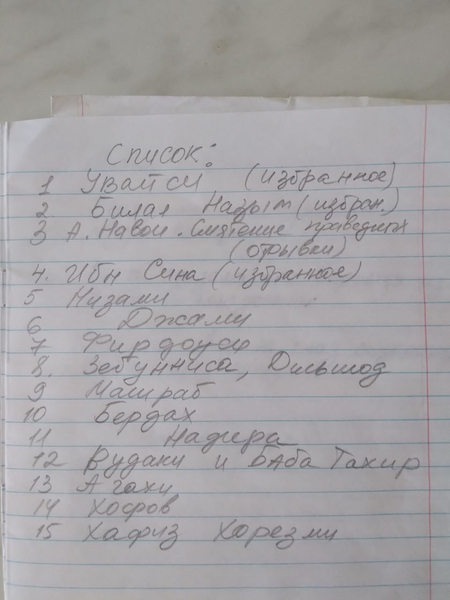 Список:
1 Увайси (избранное)
2 Билал Назым (избран.)
3 А. Навои. Смятение праведных
(отрывки)
4. Ибн Сина (избранное)
5 Низами
6 Джами
7 Фирдоуси
8. Зебунниса, Дильшод
9 Машраб
10 Бердах
11 Надира
12 Рудаки и Баба Тахир
13 Агахи
14 Хофов
15 Хафиз Хорезми